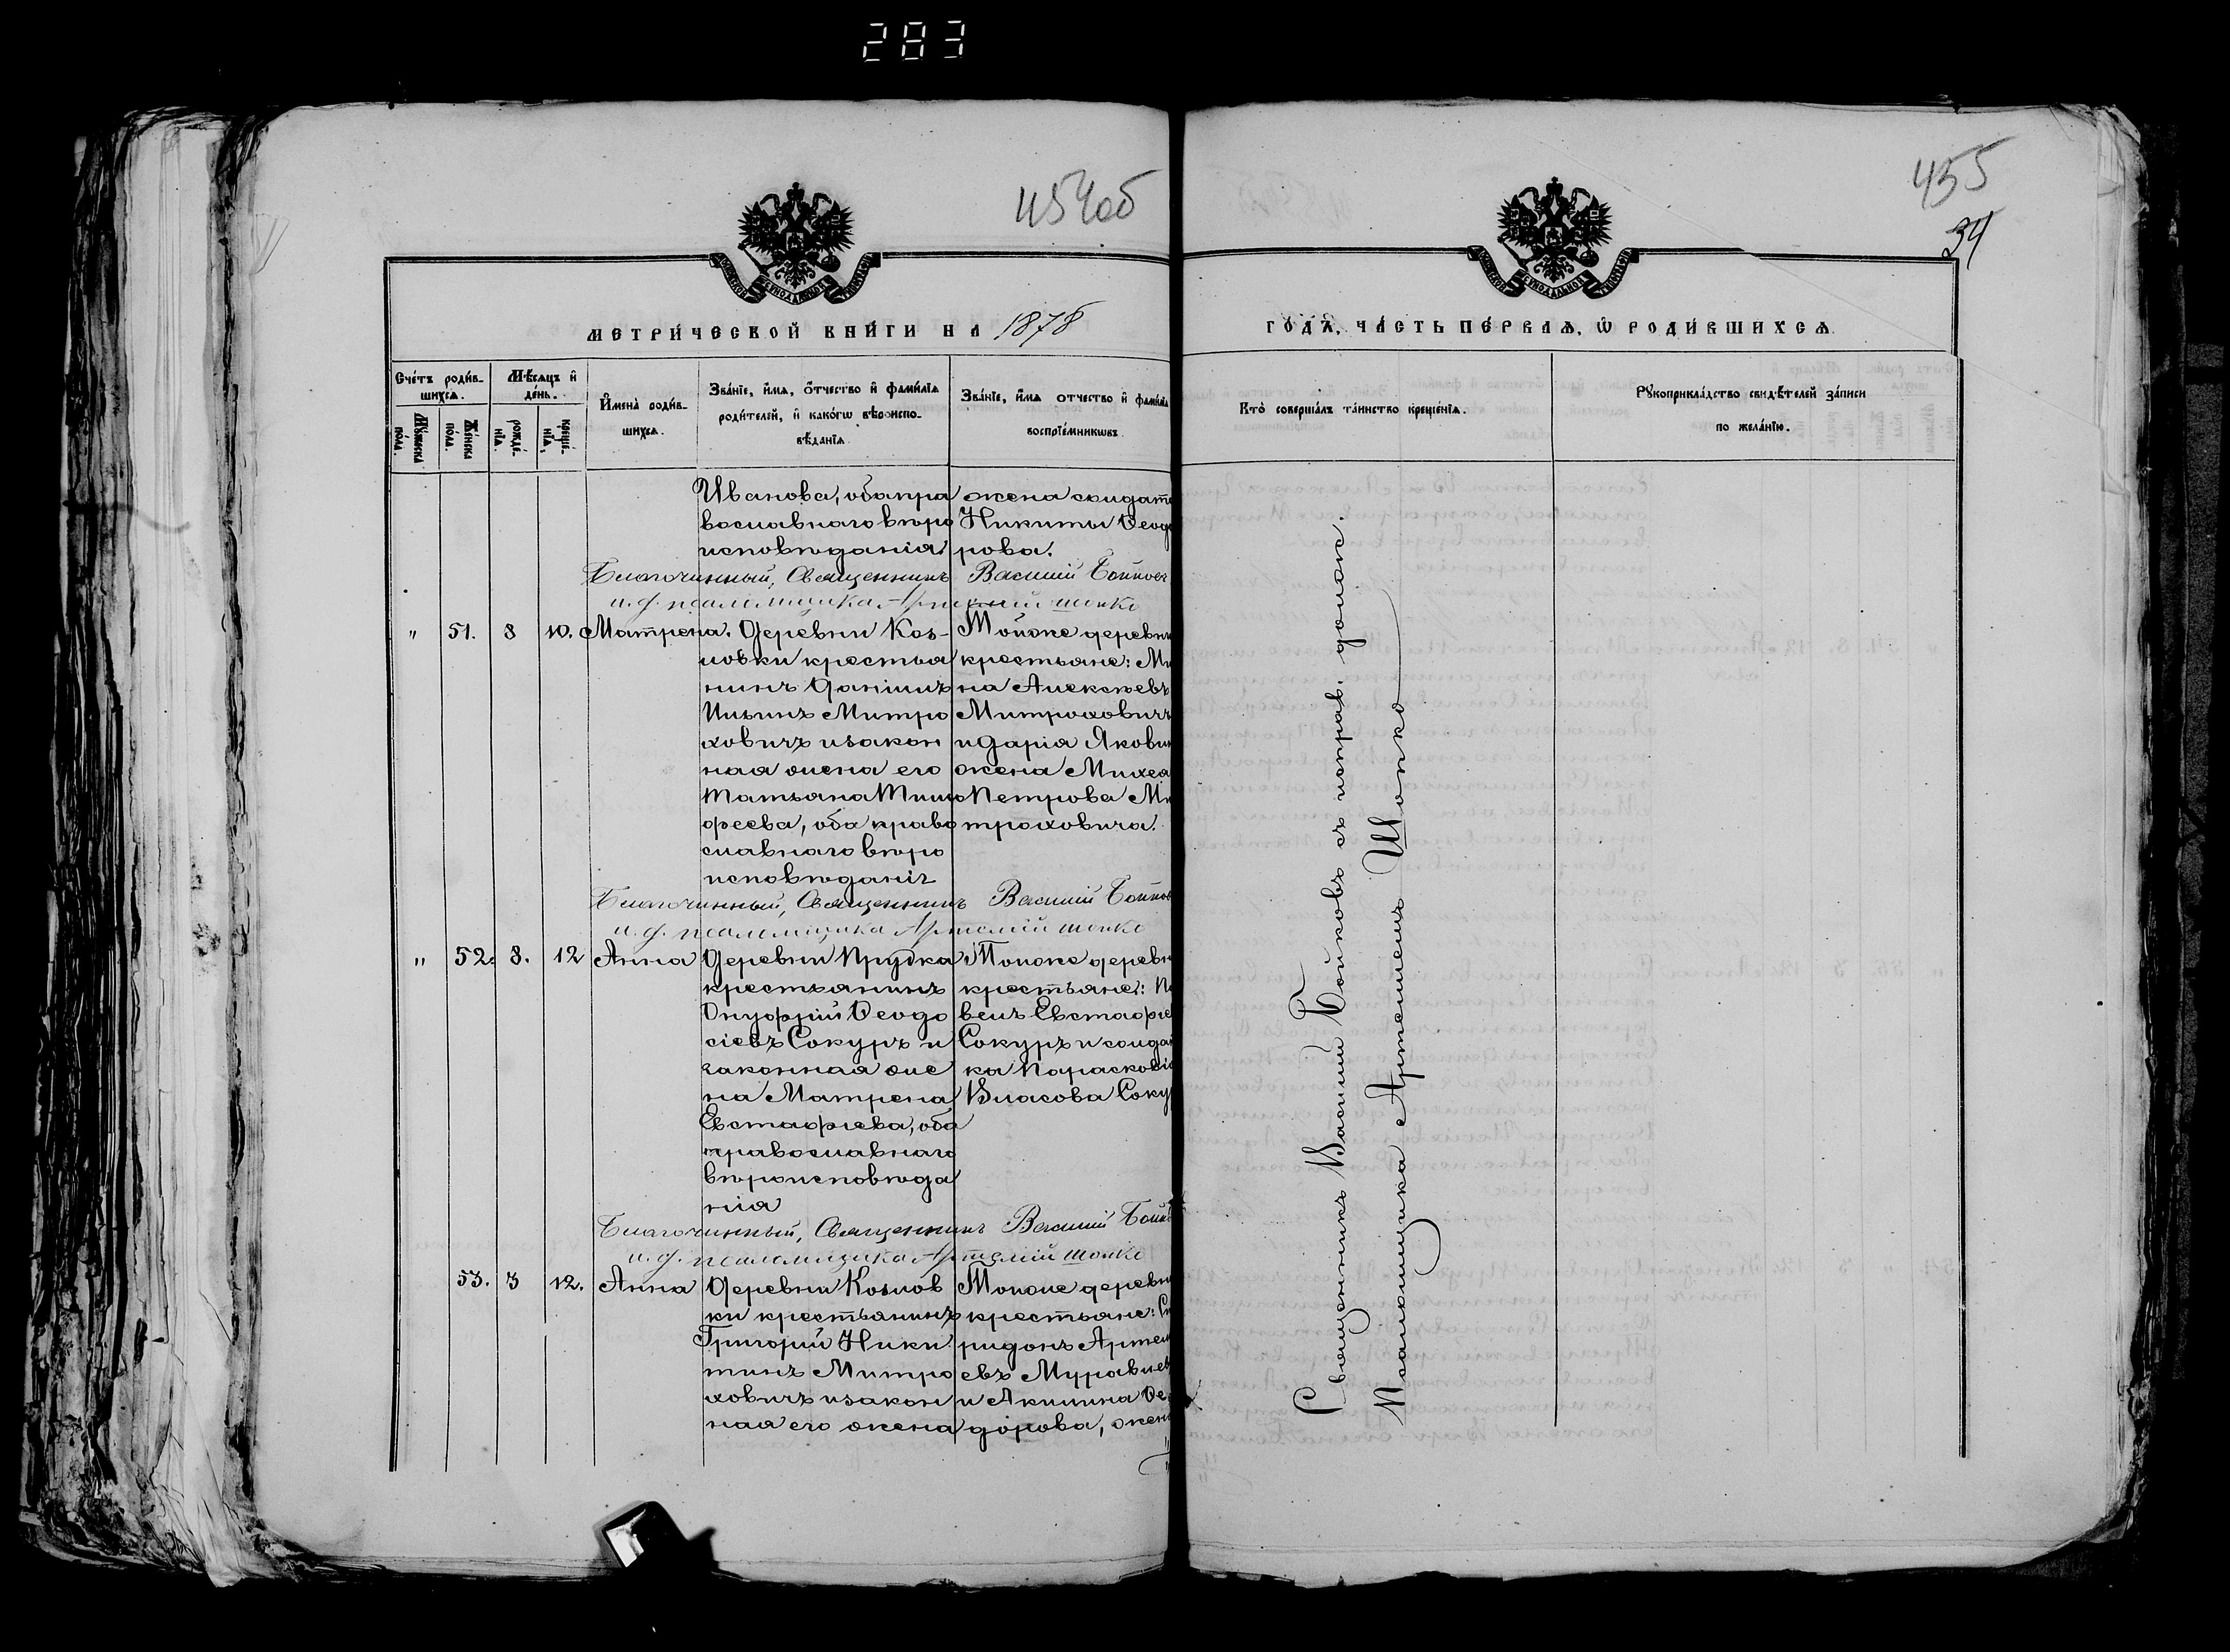 283
454об
455
34
МЕТРИ́ЧЕСКОЙ КНИ́ГИ НА 1878
ГО́ДА, ЧА́СТЬ ПЕ́РВАѦ, Ѡ РОДИ́ВШИХСѦ
Сче́тъ роди́в-
шихсѧ.
Мꙋ́жеска по́ла.
Же́нска по́ла.
Мѣ́сѧцъ и҆
де́нь.
рожде́-
нїѧ.
креще́-
нїѧ.
И҆мена̀ роди́в-
шихсѧ.
Зва́нїе, и҆́мѧ, ѻ҆́тчество и҆ фами́лїѧ
роди́телей, и҆ како́гѡ вѣроиспо-
вѣ́данїѧ
Зва́нїе, и҆́мѧ отчество и҆ фами́лїѧ
воспрїе́мникѡвъ
Кто̀ соверша́лъ та́инство креще́нїѧ.
Рꙋкоприкла́дство свидѣ́телей за́писи
по жела́нїю.
Иванова, оба пра
вославнаго вѣро
исповѣданія.
жена солдат
Никиты Ѳеодо
рова.
Благочинный, Священникъ Василій Бойковъ
и. д. псаломщика Артемій Шопко
" 51. 8 10. Матрена.
Деревни Коз-
ловки крестья
нинъ Даніилъ
Ильинъ Митро
ховичъ и закон
ная жена его
Татьана Тимо
феева, оба право
славнаго вѣро
исповѣданія
Тойже деревни
крестьяне: Ми
на Алексѣевъ
Митроховичъ
и Дарія Яковл
жена Михея
Петрова Ми
троховича.
Благочинный, Священникъ Василій Бойков
и. д. псаломщика Артемій Шопко
" 52. 8. 12 Анна
Деревни Прудка
крестьянинъ
Онуфрій Ѳеодо
сіевъ Сокуръ и
законная же
на Матрена
Евстафіева, оба
православнаго
вѣроисповѣда
нія
Тойже деревн
крестьяне: Па
велъ Евстафіе
Сокуръ и солдат
ка Параскові
Власова Соку
Благочинный, Священникъ Василій Бойк
и. д. псаломщика Артемій Шопко
53. 3 12. Анна
Деревни Козлов
ки крестьянинъ
Григорій Ники
тинъ Митро
ховичъ и закон
ная его жена
Тойже деревн
крестьяне: Сп
ридонъ Артем
евъ Муравьев
и Акилина Ѳе
дорова, жен
Священникъ Василій Бойковъ съ исправ. долж.
Псаломщика Артемiемъ Шопко